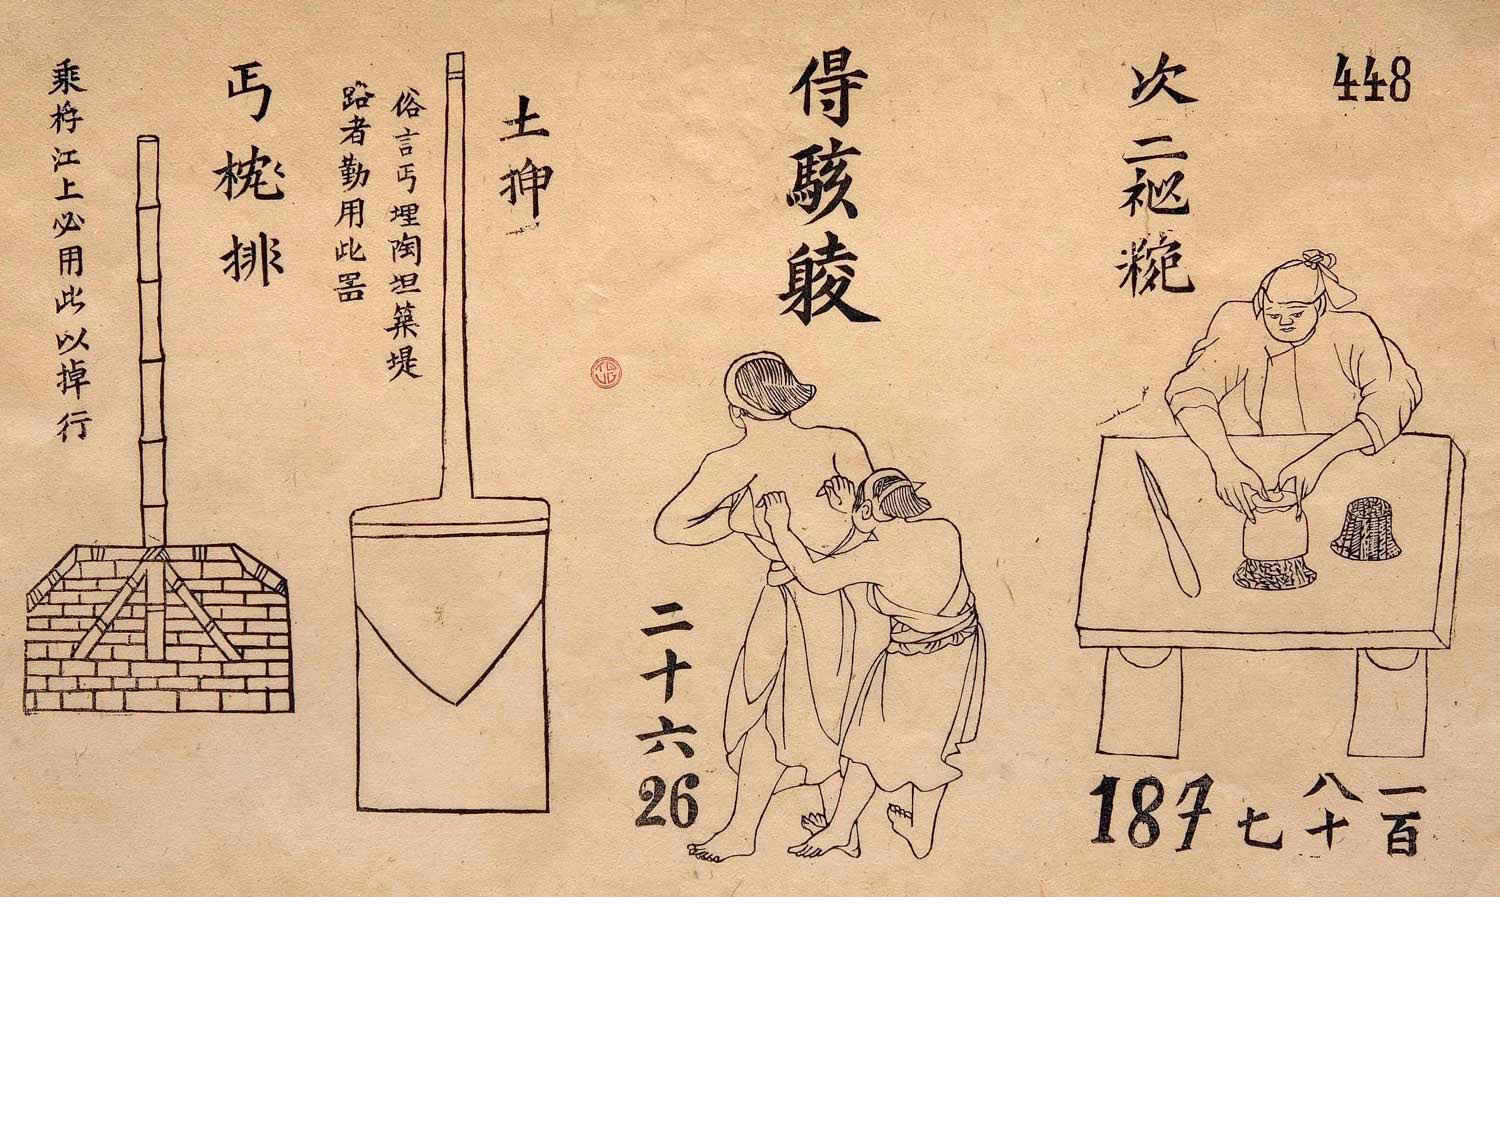 448
次
二
𥘶
糀
一百
八十
七
187
得
駭
䠋
二十六
26
土抻
俗言丐埋陶坦築堤
路者勤用此器
丐
枕
排
乘桴江上必用此以掉行